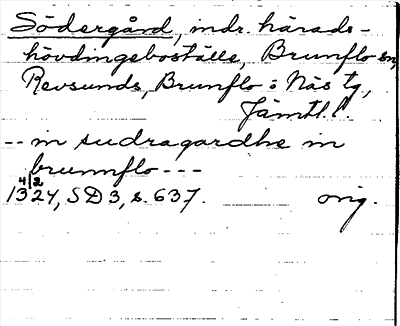 Södergård, indr. härads-
hövdingeboställe, Brunflo sn,
Revsunds, Brunflo o Näs tg,
Jämtl. l.
-- in sudragardhe in
brunnflo ---
13 4/2 24, SD 3, s. 637. orig.